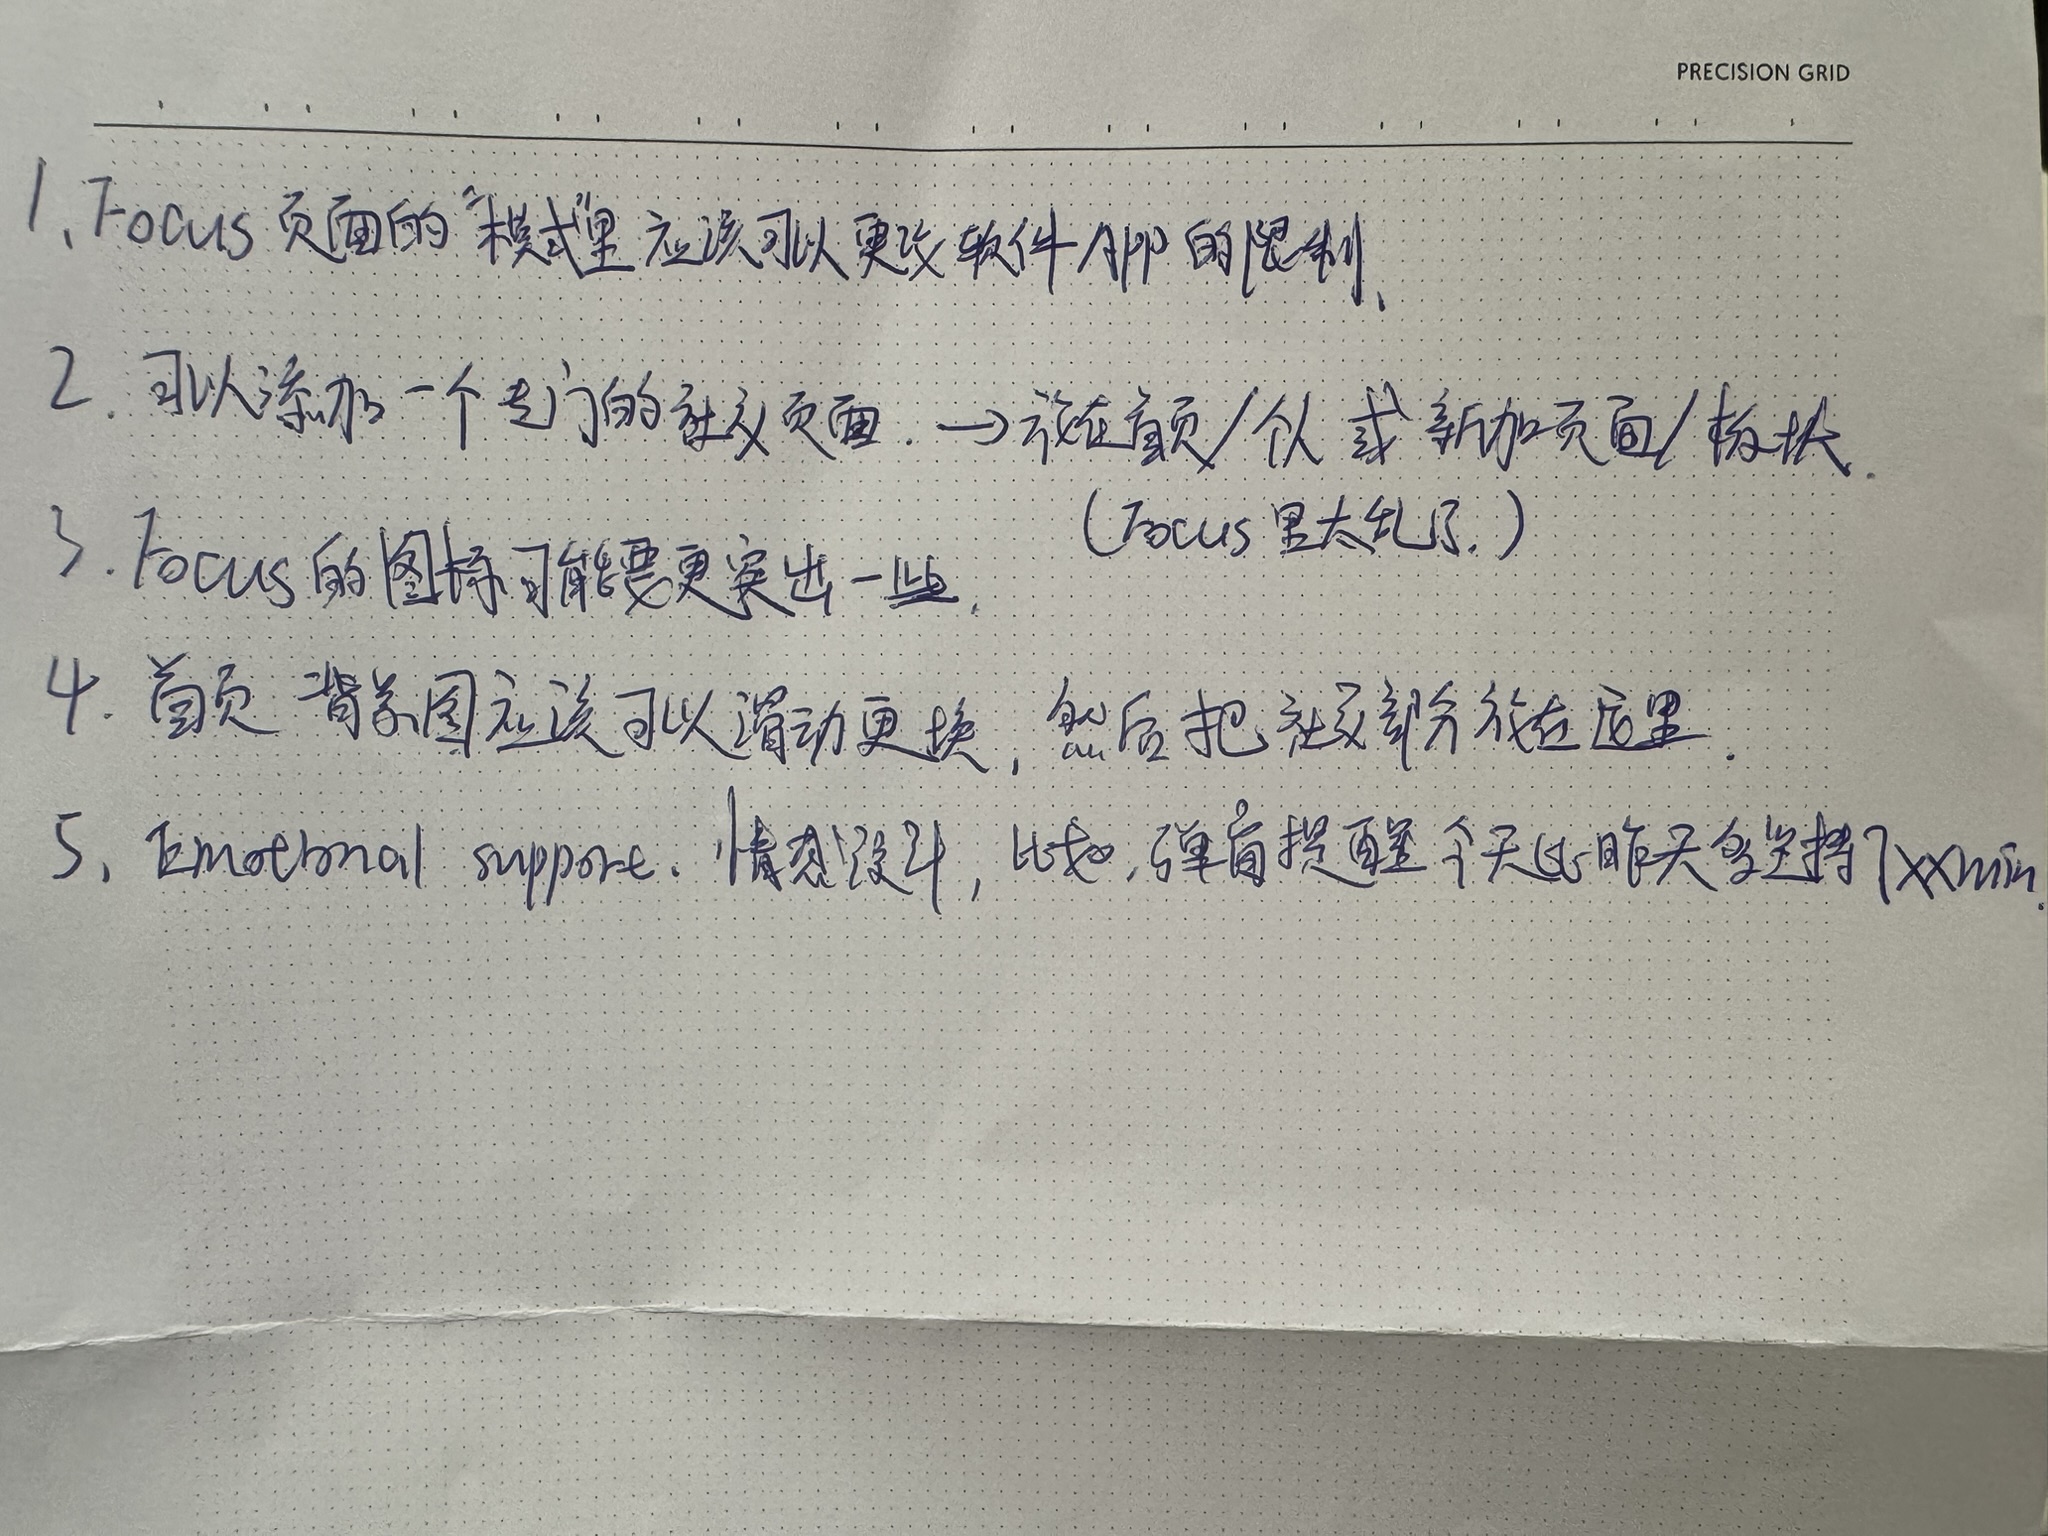 PRECISION GRID
1、Focus 页面的“模式”里应该可以更改软件APP的限制、
2. 可以添加一个专门的社交页面. →放在首页/个人 或 新加页面/板块.
(Focus里太乱了.)
3. Focus的图标可能要更突出一些.
4. 首页 背景图应该可以滑动更换, 然后把社交部分放在这里.
5、Emotional support. 情感设计, 比如, 弹窗提醒今天比昨天多坚持了xxmin.